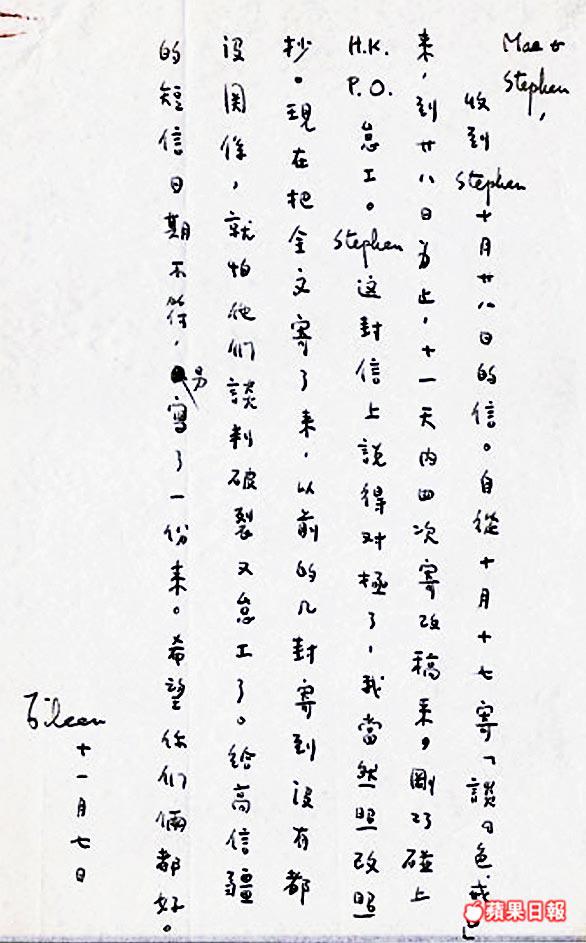 Mae &
Stephen,
收到Stephen十月廿八日的信。自從十月十七寄「談『色戒』
来,到廿八日为止,十一天内四次寄改稿来。剛巧碰上
H.K.
P.O. 怠工。Stephen这封信上說得对極了,我當然照改照
抄。現在把全文寄了来,以前的几封寄到没有都
没関係,就怕他們談判破裂又怠工了。給高信疆
的短信日期不符,另寫了一份来。希望你们倆都好。
Eileen
十一月七日
蘋果日報